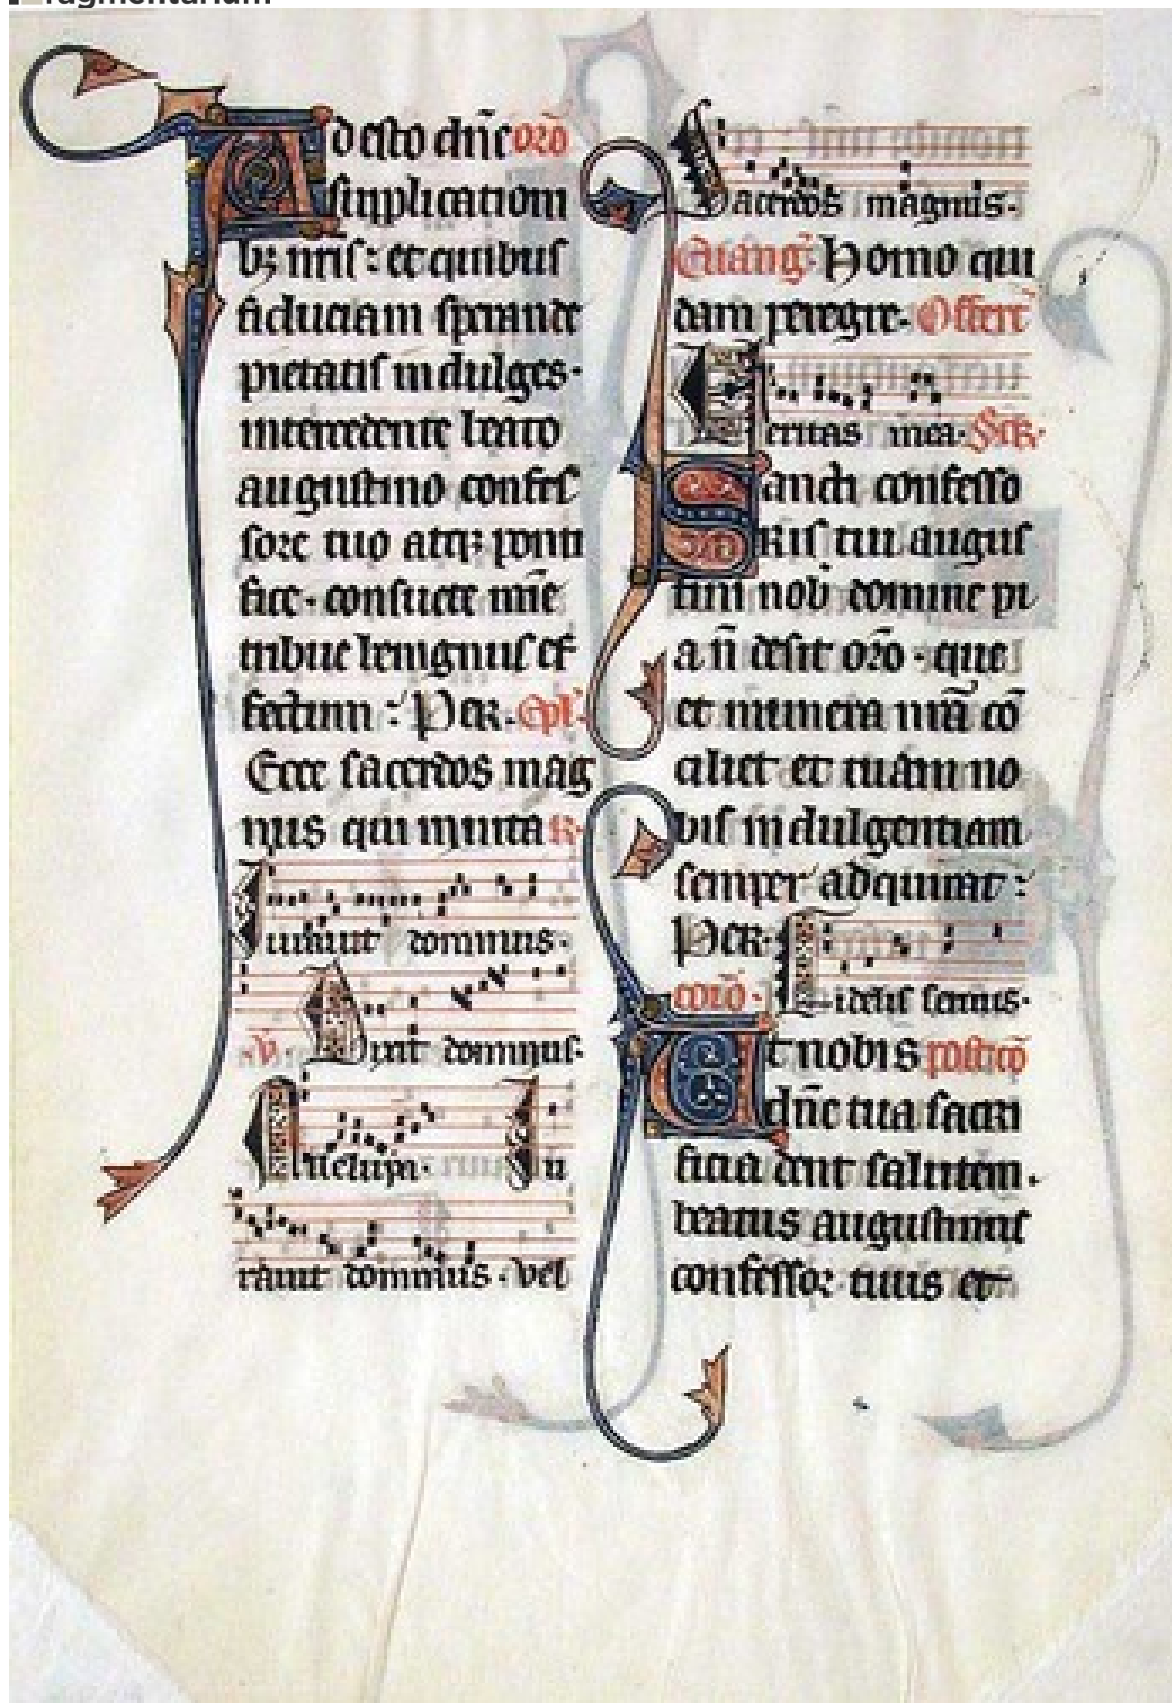 Fragmentarium
Adesto dn̄e orō
supplication
bꝫ nr̄is : et quibus
fiduciam sperande
pietatis indulges ·
intercedente beato
augustino confes
sore tuo atqꝫ ponti
fice · consuete mīe
tribue benignus ef
fectum : Per · Epl̄ ·
Ecce sacerdos mag
nus qui in uita R ·
Iurauit dominus ·
V̄ Dixit dominus ·
Alleluya · Iu
rauit dominus · vel
Sacerdos magnus ·
Euang̅ · Homo qui
dam peregre · Offert̄
Ueritas mea · Secr̄ ·
Sancti confesso
ris tui augus
tini nob̄ domine pi
a n̄ desit orō · que
et munera nr̄a cō
ciliet et tuam no
bis indulgentiam
semper adquirat :
Per ·
cōiō · Fidelis seruus ·
Ut nobis postcō
dn̄e tua sacri
ficia dent salutem ·
beatus augustinus
confessor tuus et